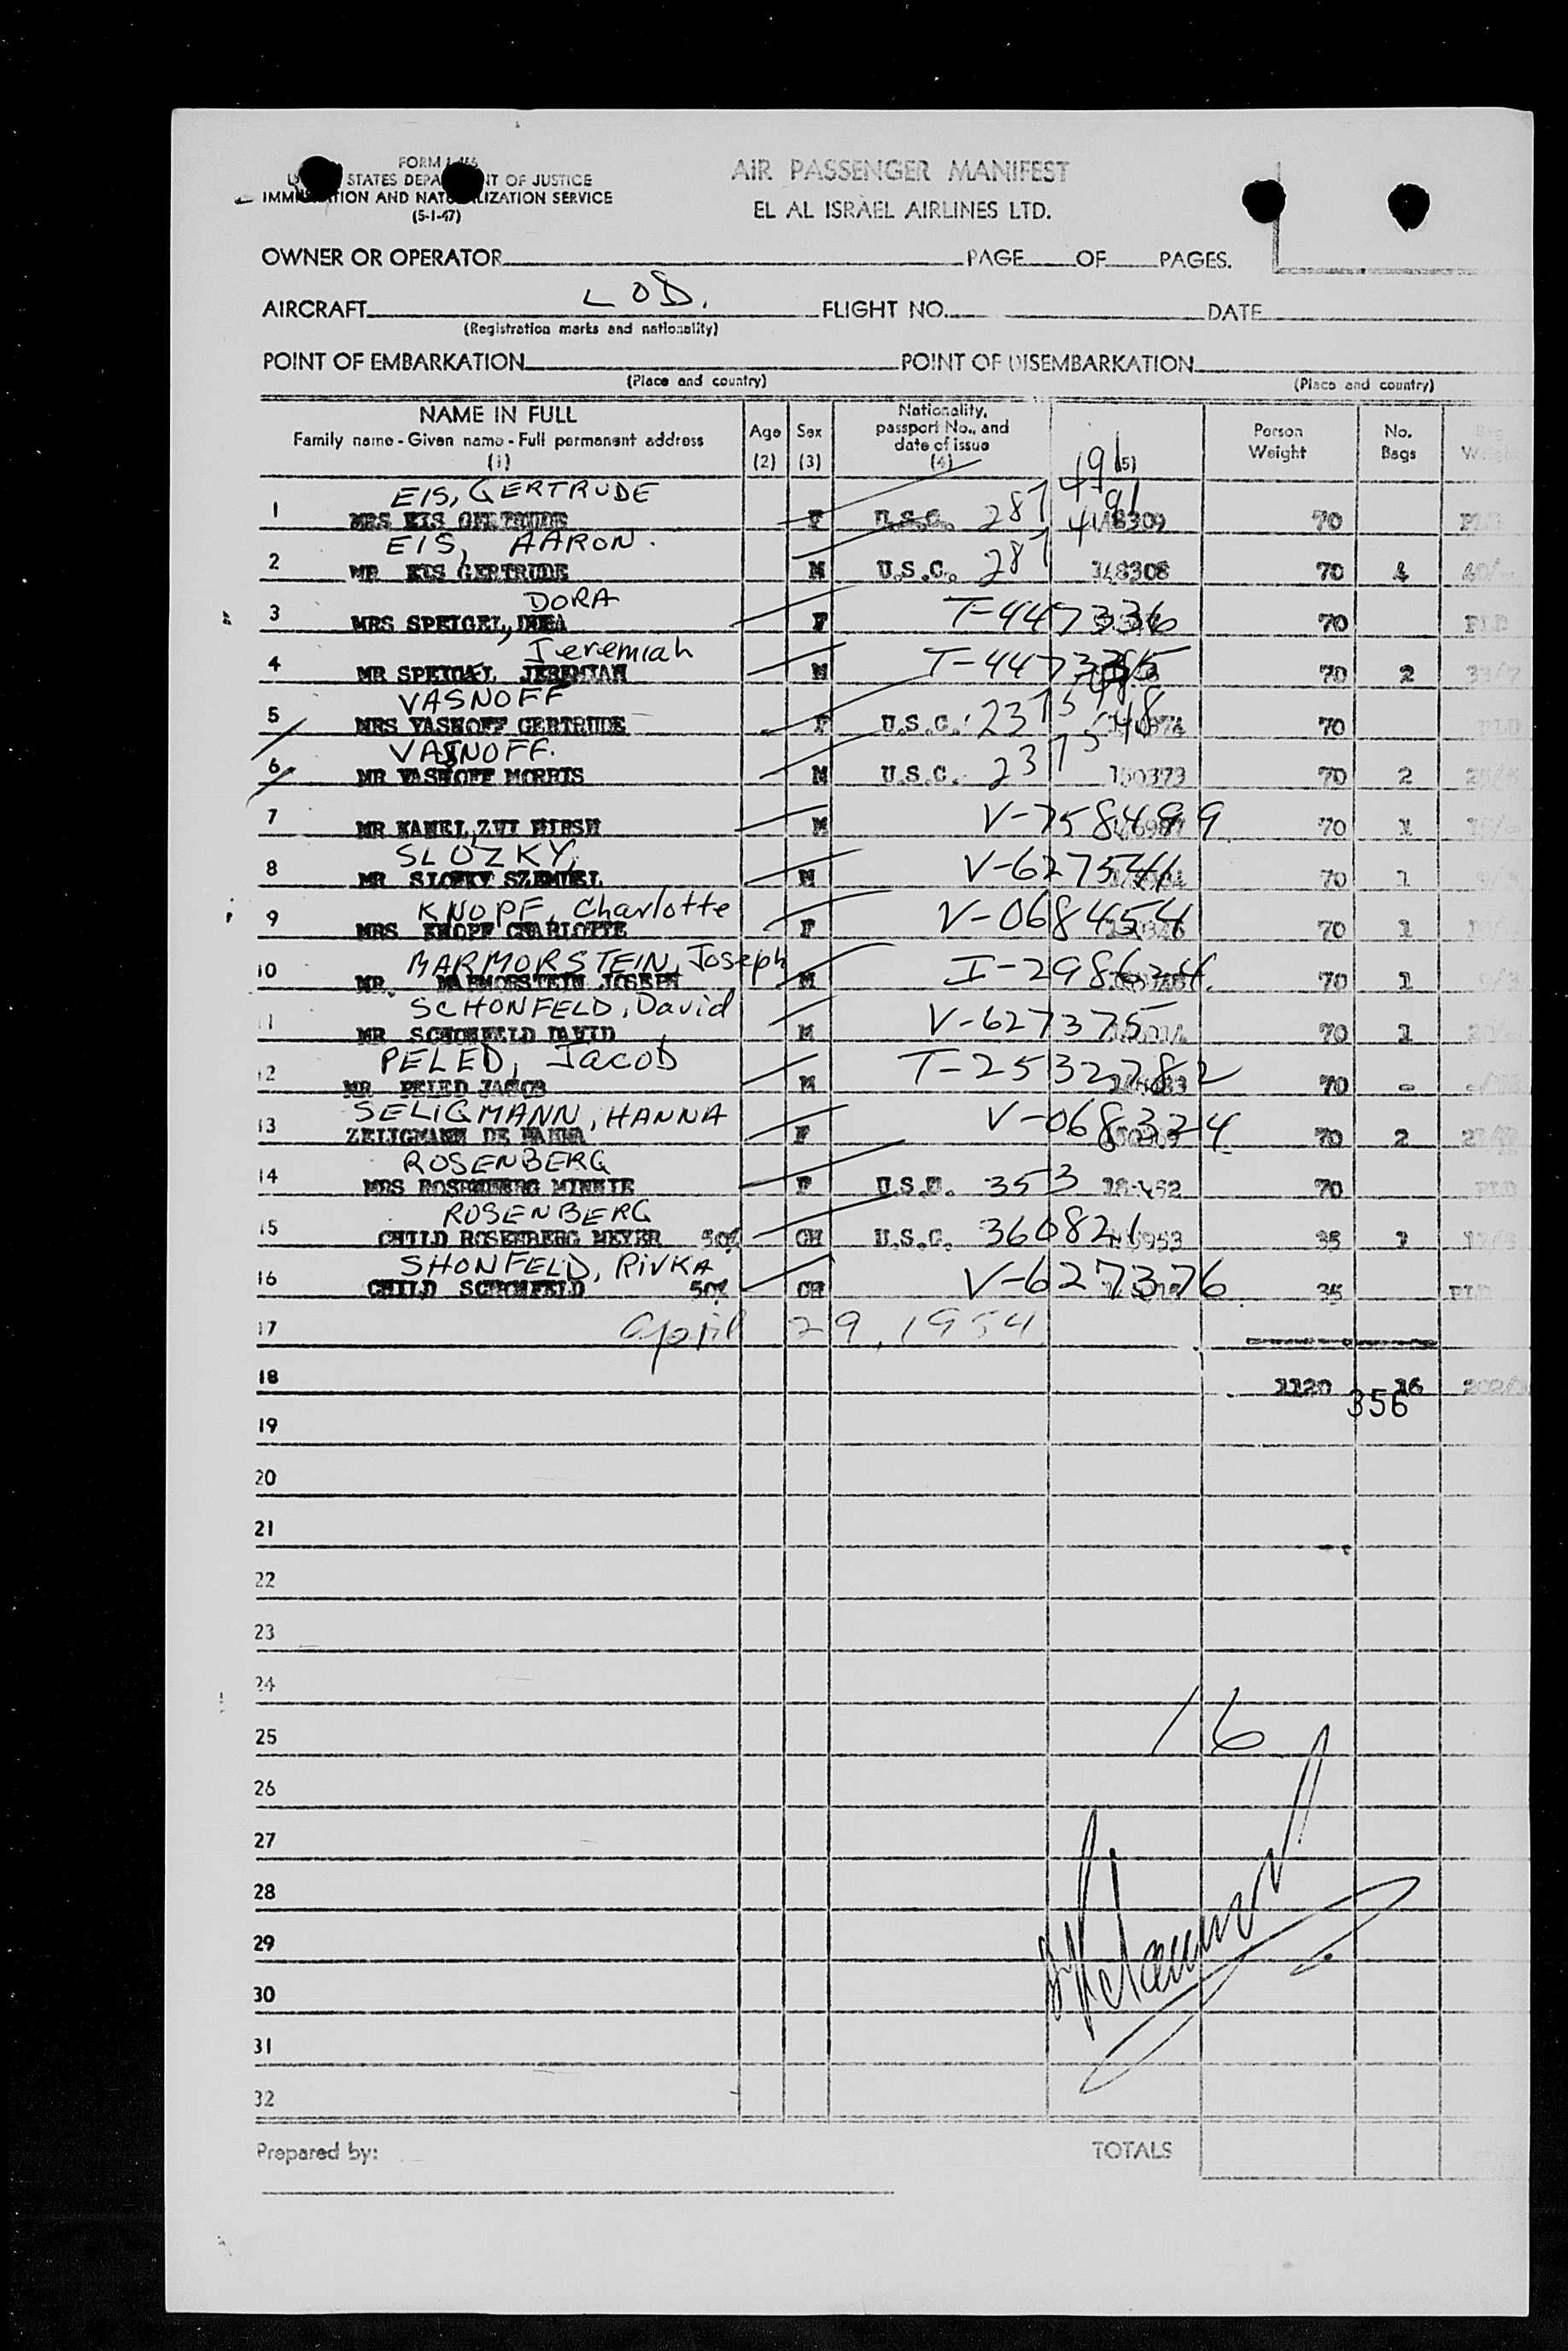 FORM I-466
STATES DEPA NT OF JUSTICE
IMMI TION AND NATU LIZATION SERVICE
(5-1-47)
AIR PASSENGER MANIFEST
EL AL ISRAEL AIRLINES LTD.
OWNER OR OPERATOR PAGE OF PAGES.
AIRCRAFT LOD. FLIGHT NO. DATE
(Registration marks and nationality)
POINT OF EMBARKATION POINT OF DISEMBARKATION
(Place and country) (Place and country)
NAME IN FULL
Family name - Given name - Full permanent address
(1)
Age
(2)
Sex
(3)
Nationality,
passport No., and
date of issue
(4)
(5)
Person
Weight
No.
Bags
EIS, GERTRUDE 491
1 MRS EIS GERTRUDE F U.S.C. 287 148309 70 PLD
EIS, AARON. 287 491
2 MR EIS GERTRUDE M U.S.C. 148308 70 4 40/-
DORA
3 MRS SPEIGEL, F T-447336 70 PLD
Jeremiah
4 MR SPEIGEL JEREMIAH M T-447335 70 2 33/7
VASNOFF
5 MRS VASHOFF GERTRUDE F U.S.C. 2375 70 PLD
VASNOFF.
6 MR VASHOFF MORRIS M U.S.C. 2375 48 150373 70 2
7 MR KAMEL, ZVI HIRSH M V-758499 70 1
SLOZKY,
8 MR SLOZKY SZEMUEL M V-627544 70 1
KNOPF, Charlotte
9 MRS KNOPF CHARLOTTE F V-068454 70 1
MARMORSTEIN, Joseph
10 MR. MARMORSTEIN JOSEPH M I-298624 70 1
SCHONFELD, David
11 MR SCHONFELD DAVID M V-627375 70 1
PELED, Jacob
12 MR PELED JACOB M T-2532782 70 -
SELIGMANN, HANNA
13 ZELIGMANN DE HANNA F V-068324 70 2
ROSENBERG
14 MRS ROSENBERG MINNIE F U.S.C. 353 70 PLD
ROSENBERG
15 CHILD ROSENBERG MEYER 50% CH U.S.C. 360821 35 1
SHONFELD, RIVKA
16 CHILD SCHONFELD 50% CH V-627376 35 PLD
17 April 29, 1954
18 1120 16
356
19
20
21
22
23
24
25 16
26
27
28
29
30
31
32
Prepared by: TOTALS